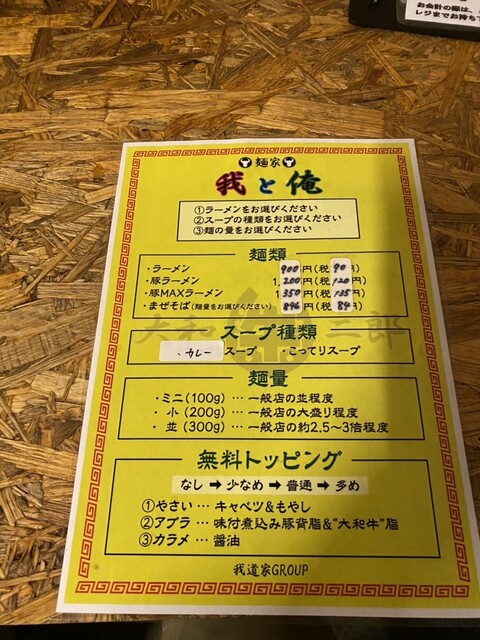 お会計の際は、
レジまでお持ち
麺家
我と俺
①ラーメンをお選びください
②スープの種類をお選びください
③麺の量をお選びください
麺類
・ラーメン 900円(税 90円)
・豚ラーメン 1,200円(税120円)
・豚MAXラーメン 1350円(税135円)
・まぜそば(麺量をお選びください) 846円(税 84円)
スープ種類
・カレースープ ・こってりスープ
麺量
・ミニ(100g)…一般店の並程度
・小(200g)…一般店の大盛り程度
・並(300g)…一般店の約2.5〜3倍程度
無料トッピング
なし➡少なめ➡普通➡多め
①やさい…キャベツ&もやし
②アブラ…味付煮込み豚背脂&"大和牛"脂
③カラメ…醤油
我道家GROUP